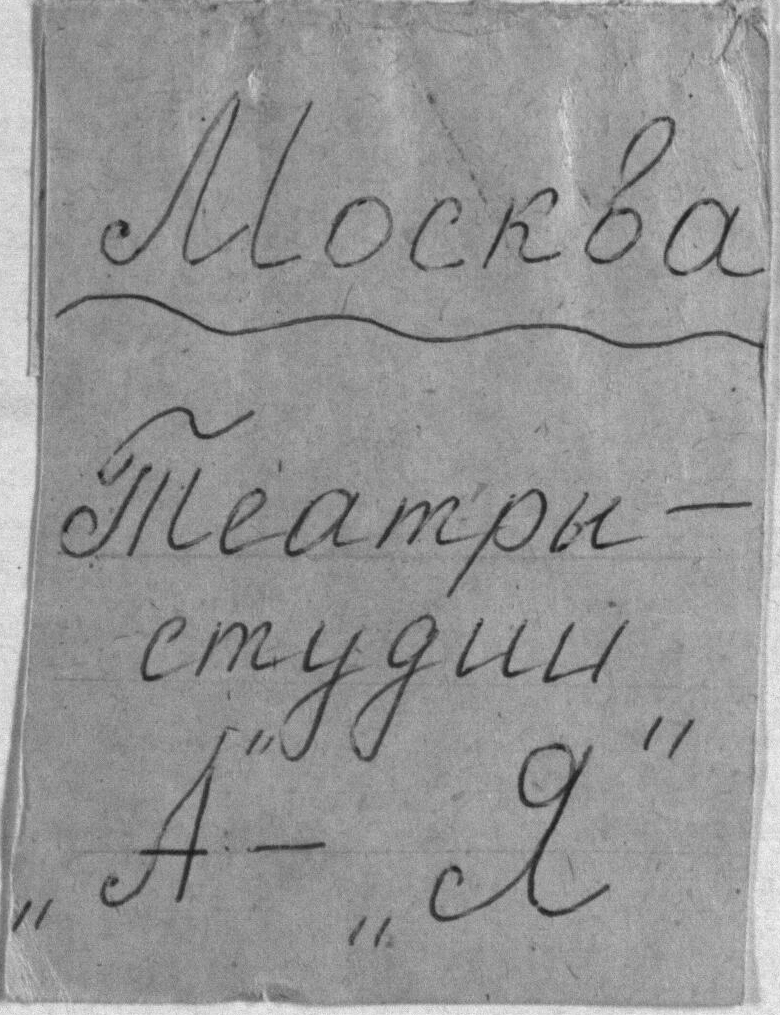 Москва
Театры –
студии
„А" – „Я"